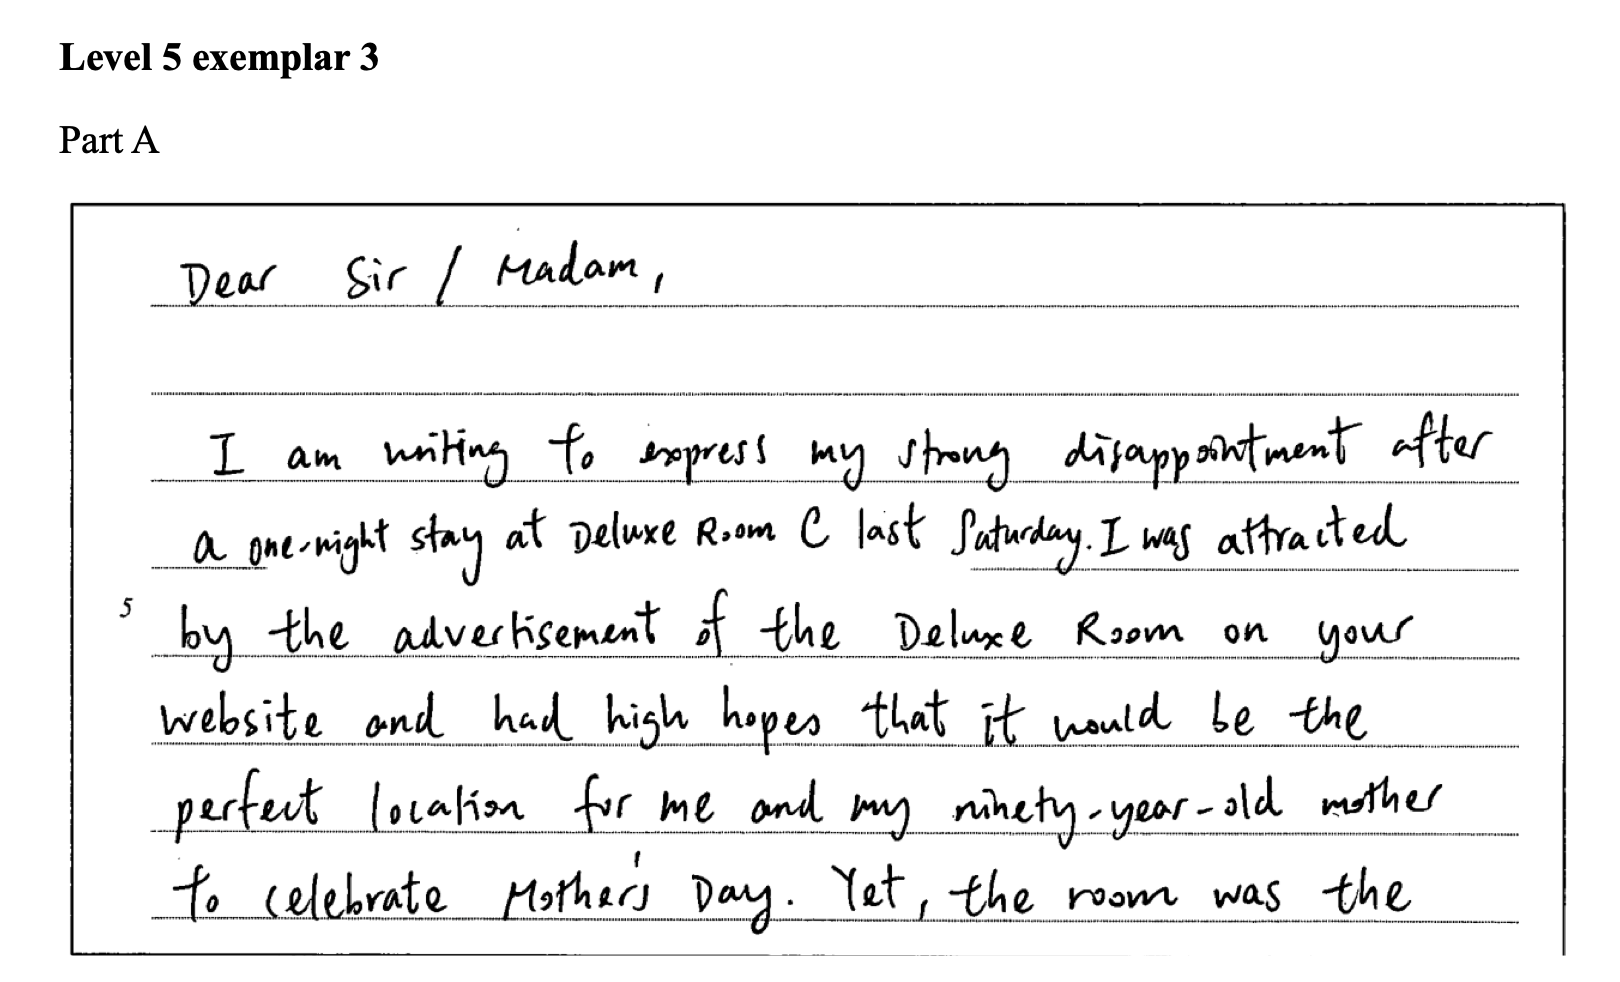 Level 5 exemplar 3
Part A
Dear Sir / Madam,
I am writing to express my strong disappointment after
a one-night stay at Deluxe Room C last Saturday. I was attracted
5 by the advertisement of the Deluxe Room on your
website and had high hopes that it would be the
perfect location for me and my ninety-year-old mother
to celebrate Mother's Day. Yet, the room was the